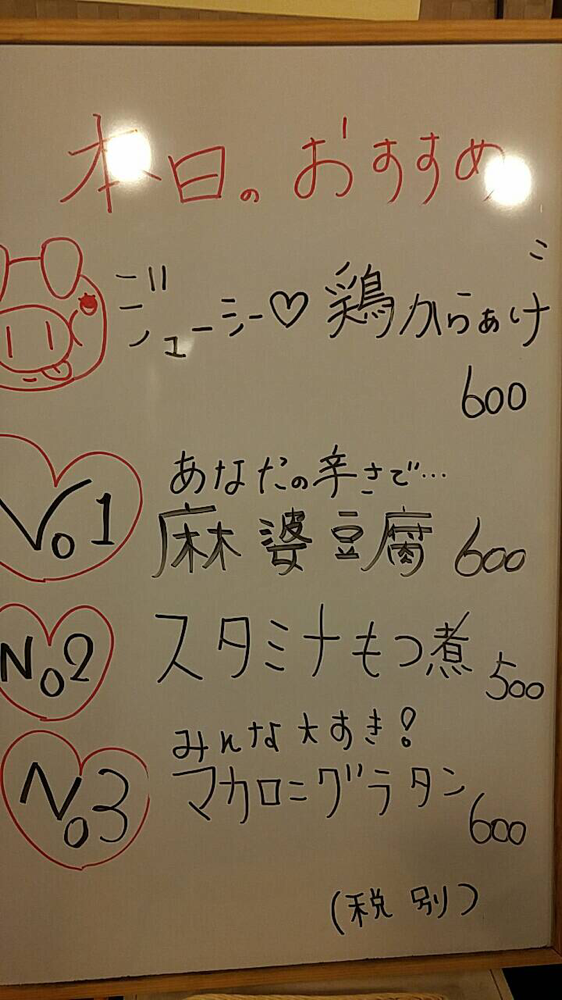 本日のおすすめ
ジューシー♡鶏からあげ
600
No1
あなたの辛さで…
麻婆豆腐 600
No2 スタミナもつ煮 500
みんな大すき!
No3 マカロニグラタン 600
(税別)